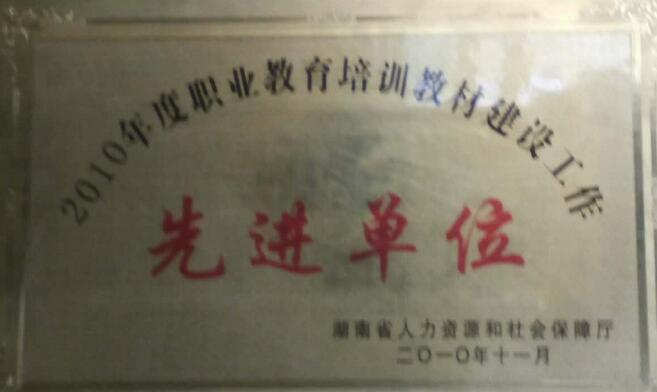 2010年度职业教育培训教材建设工作
先进单位
湖南省人力资源和社会保障厅
二〇一〇年十一月